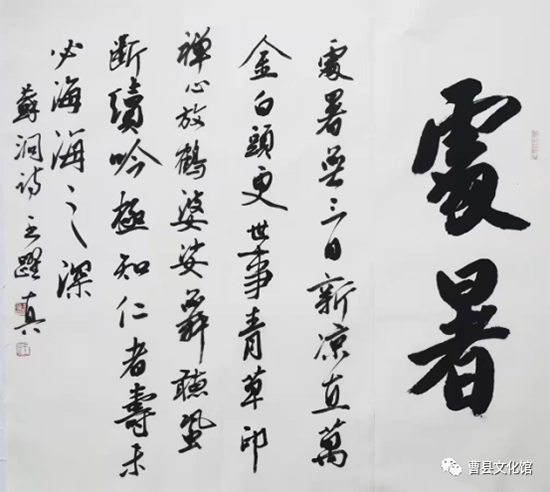 處暑
處暑無三日新凉直萬
金白頭更世事青草印
禪心放鶴婆娑舞聽蛩
断續吟極知仁者壽未
必海海之深
蘇泂詩 王躍真
曹县文化馆